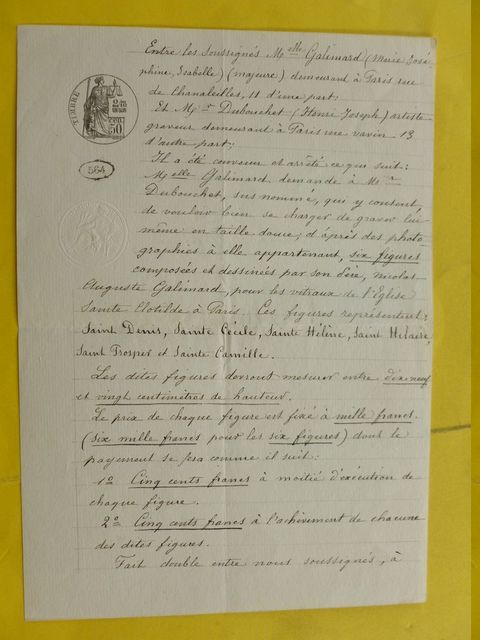 Entre les soussignés Melle Galimard (Marie José
phine, Isabelle) (majeure) demeurant à Paris rue
de Chanaleilles, 11 d'une part;
Et Mr Dubouchet (Henri Joseph) artiste
graveur demeurant à Paris rue vavin 13
d'autre part;
Il a été convenu et arrêté ce qui suit:
Melle Galimard demande à Mr
Dubouchet, sus nommé, qui y consent,
de vouloir bien se charger de graver lui
même en taille douce, d'après des photo
graphies à elle appartenant, six figures
composées et dessinées par son père, Nicolas
Auguste Galimard, pour les vitraux de l'Eglise
Sainte Clotilde à Paris. Ces figures représentent:
Saint Denis, Sainte Cécile, Sainte Hélène, Saint Hilaire,
Saint Prosper et Sainte Camille.
Les dites figures devront mesurer entre dix neuf
et vingt centimètres de hauteur.
Le prix de chaque figure est fixé à mille francs
(six mille francs pour les six figures) dont le
payement se fera comme il suit:
1º Cinq cents francs à moitié d'exécution de
chaque figure.
2º Cinq cents francs à l'achèvement de chacune
des dites figures.
Fait double entre nous soussignés, à
TIMBRE
50
564